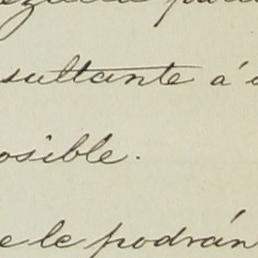 sultante á
osible.
e le podrán